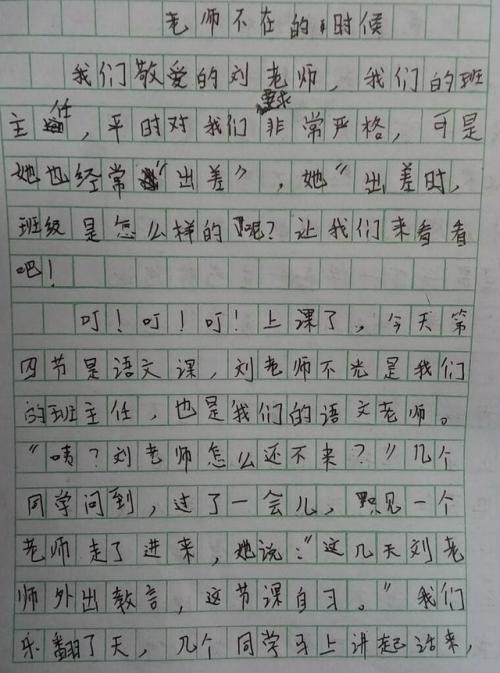 老师不在的时候
我们敬爱的刘老师，我们的班
主任，平时对我们要求非常严格，可是
她也经常“出差”，她“出差时，
班级是怎么样的呢？让我们来看看
吧！
叮！叮！叮！上课了，今天第
四节是语文课，刘老师不光是我们
的班主任，也是我们的语文老师。
“咦？刘老师怎么还不来？”几个
同学问到，过了一会儿，只见一个
老师走了进来，她说：“这几天刘老
师外出教言，这节课自习。”我们
乐翻了天，几个同学马上讲起话来，